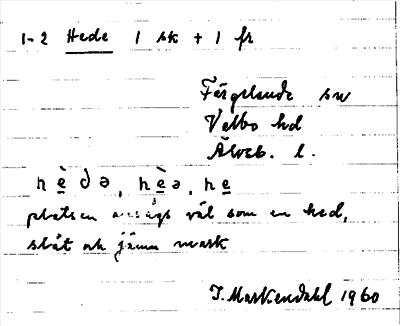 1-2 Hede 1 sk + 1 fr
Färgelanda sn
Valbo hd
Älvsb. l.
hèdə, hèə, he
platsen ansågs väl som en hed,
slät och jämn mark
J. Markendahl 1960